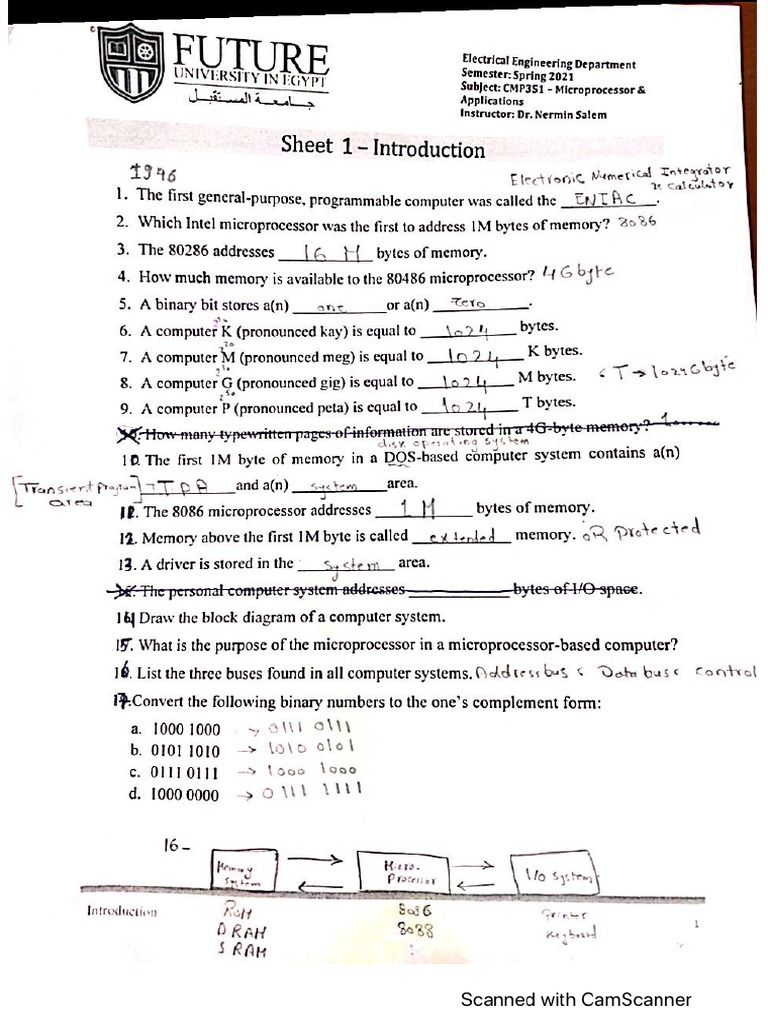 FUTURE
UNIVERSITY IN EGYPT
جامعة المستقبل
Electrical Engineering Department
Semester: Spring 2021
Subject: CMP351 – Microprocessor &
Applications
Instructor: Dr. Nermin Salem
Sheet 1 – Introduction
1946
Electronic Numerical Integrator
& Calculator
1. The first general-purpose, programmable computer was called the ENIAC.
2. Which Intel microprocessor was the first to address 1M bytes of memory? 8086
3. The 80286 addresses 16 M bytes of memory.
4. How much memory is available to the 80486 microprocessor? 4Gbyte
5. A binary bit stores a(n) one or a(n) zero.
6. A computer K (pronounced kay) is equal to 1024 bytes.
7. A computer M (pronounced meg) is equal to 1024 K bytes.
8. A computer G (pronounced gig) is equal to 1024 M bytes. T → 1024 Gbyte
9. A computer P (pronounced peta) is equal to 1024 T bytes.
How many typewritten pages of information are stored in a 4G-byte memory?
disk operating system
10. The first 1M byte of memory in a DOS-based computer system contains a(n)
[Transient Program area] TPA and a(n) system area.
11. The 8086 microprocessor addresses 1 M bytes of memory.
12. Memory above the first 1M byte is called extended memory. OR Protected
13. A driver is stored in the system area.
The personal computer system addresses bytes of I/O space.
14 Draw the block diagram of a computer system.
15. What is the purpose of the microprocessor in a microprocessor-based computer?
16. List the three buses found in all computer systems. Address bus & Data bus & control
17. Convert the following binary numbers to the one's complement form:
a. 1000 1000 → 0111 0111
b. 0101 1010 → 1010 0101
c. 0111 0111 → 1000 1000
d. 1000 0000 → 0111 1111
16 –
Memory System
Micro-Processor
I/o System
Introduction
ROM
8086
Printer
DRAM
8088
Keyboard
SRAM
1
Scanned with CamScanner